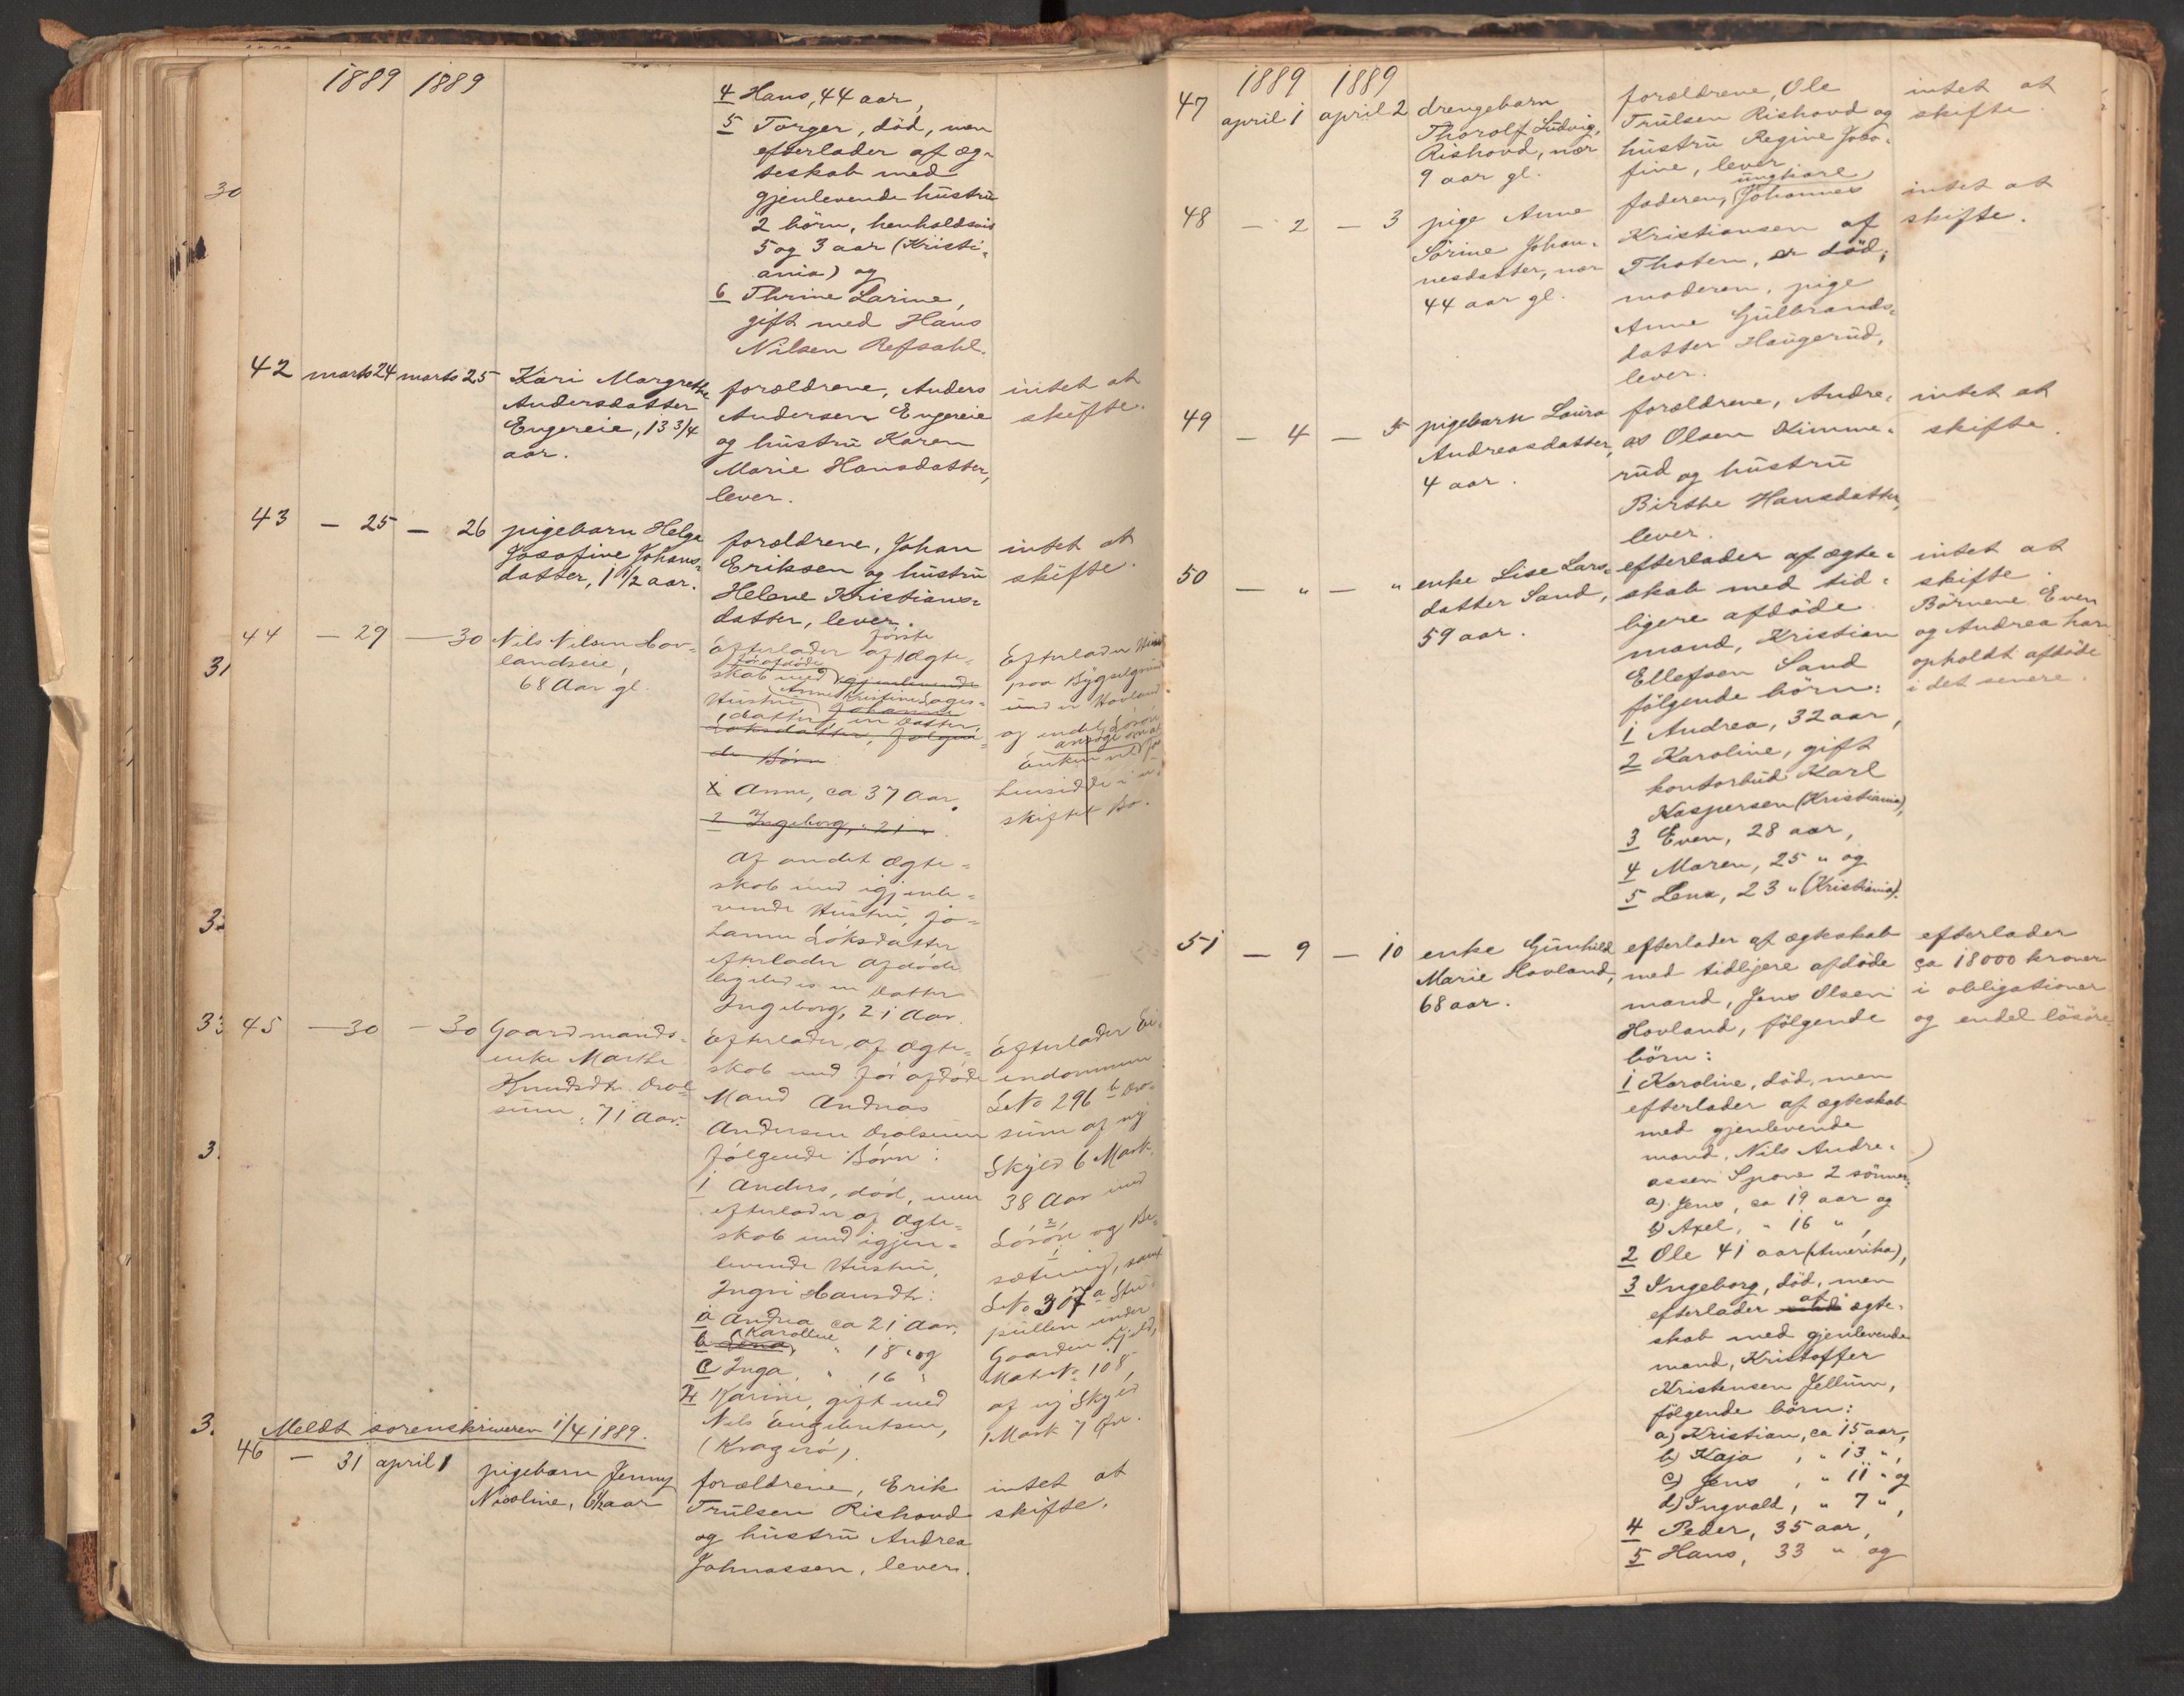 1889 1889
4 Hans, 44 aar,
5 Torger, död, men
efterlader af æg-
teskab med
gjenlevende hustru
2 börn, henholdsvis
5 og 3 aar (Kristi-
ania) og
6 Thrine Larine,
gift med Hans
Nilsen Refsahl.
42 marts 24 marts 25
Kari Margrethe
Andersdatter
Engereie, 13 3/4
aar.
forældrene, Anders
Andersen Engereie
og hustru Karen
Marie Hansdatter,
lever.
intet at
skifte.
43 — 25 — 26
pigebarn Helga
Josefine Johans-
datter, 1 1/2 aar.
forældrene, Johan
Eriksen og hustru
Helene Kristians-
datter, lever.
intet at
skifte.
44 — 29 — 30
Nils Nilsen Hov-
landseie,
68 Aar gl.
første
Efterlader af Ægte-
forafdøde
skab med igjenlevende
Anne Kristine
Hustru Johanne
datter, en Datter,
Loksdatter, følgen-
de Børn
1 Anne, ca 37 Aar.
2 Ingeborg, 21 "
af andet Ægte-
skab med igjenle-
vende Hustru, Jo-
hanne Loksdatter
efterlader afdøde
ligeledes en Datter
Ingeborg, 21 Aar.
Efterlader
paa Bygselgrund
under Hovland
og endel Løsøre
Enken
hensidde i u-
skiftet Bo.
45 — 30 — 30
Gaardmands-
enke Marthe
Knudsdtr.
71 Aar.
Efterlader af Ægte-
skab med forafdøde
Mand Andreas
Andersen
følgende Børn:
1 Anders, død, men
efterlader af Ægte-
skab med igjen-
levende Hustru,
Ingri Hansdtr:
a Andrea ca 21 Aar,
Karoline
b Lena, " 18 " og
c Inga, " 16 "
2 Karine, gift med
Nils Engebretsen,
(Kragerø).
Efterlader Ei-
endommen
LNo 296 b
af ny
Skyld 6 Mark
38 Øre med
Løsøre og Be-
sætning, samt
LNo 307 a
pullen under
Gaarden
Mat No 108,
af ny Skyld
1 Mark 7 Øre.
Meldt sorenskriveren 1/4 1889.
46 — 31 april 1
pigebarn Jenny
Nicoline, 6 1/2 aar
forældrene, Erik
Trulsen Rishovd
og hustru Andrea
Johnassen, lever.
intet at
skifte.
1889 1889
47 april 1 april 2
drengebarn
Thorolf Ludvig
Rishovd, nær
9 aar gl.
forældrene, Ole
Trulsen Rishovd og
hustru Regine Jose-
fine, lever
intet at
skifte.
48 — 2 — 3
pige Anne
Sörine Johan-
nesdatter, nær
44 aar gl.
ungkarl
faderen, Johannes
Kristiansen af
Thoten, er död;
moderen, pige
Anne Gulbrands-
datter Haugerud,
lever.
intet at
skifte.
49 — 4 — 5
pigebarn Laura
Andreasdatter,
4 aar.
forældrene, Andre-
as Olsen Kimme-
rud og hustru
Birthe Hansdatter,
lever.
intet at
skifte.
50 — " — "
enke Lise Lars-
datter Sand,
59 aar.
efterlader af ægte-
skab med tid-
ligere afdöde
mand, Kristian
Ellefsen Sand
fölgende börn:
1 Andrea, 32 aar,
2 Karoline, gift
kontorbud Karl
Kaspersen (Kristiania),
3 Even, 28 aar,
4 Maren, 25 " og
5 Lena, 23 " (Kristiania).
intet at
skifte.
Börnene Even
og Andrea har
opholdt afdöde
i det senere.
51 — 9 — 10
enke Gunhild
Marie Hovland,
68 aar.
efterlader af ægteskab
med tidligere afdöde
mand, Jens Olsen
Hovland, fölgende
börn:
1 Karoline, död, men
efterlader af ægteskab
med gjenlevende
mand, Nils Andre-
assen Spone 2 sönner:
a) Jens, ca 19 aar og
b) Axel, " 16 ",
2 Ole 41 aar (Amerika),
3 Ingeborg, död, men
af
efterlader ægte-
skab med gjenlevende
mand, Kristoffer
Kristensen Jellum,
fölgende börn:
a) Kristian, ca 15 aar,
b) Kaja, " 13 ",
c) Jens, " 11 " og
d) Ingvald, " 7 ",
4 Peder, 35 aar,
5 Hans, 33 " og
efterlader
ca 18000 kroner
i obligationer
og endel lösöre.
30
31
33